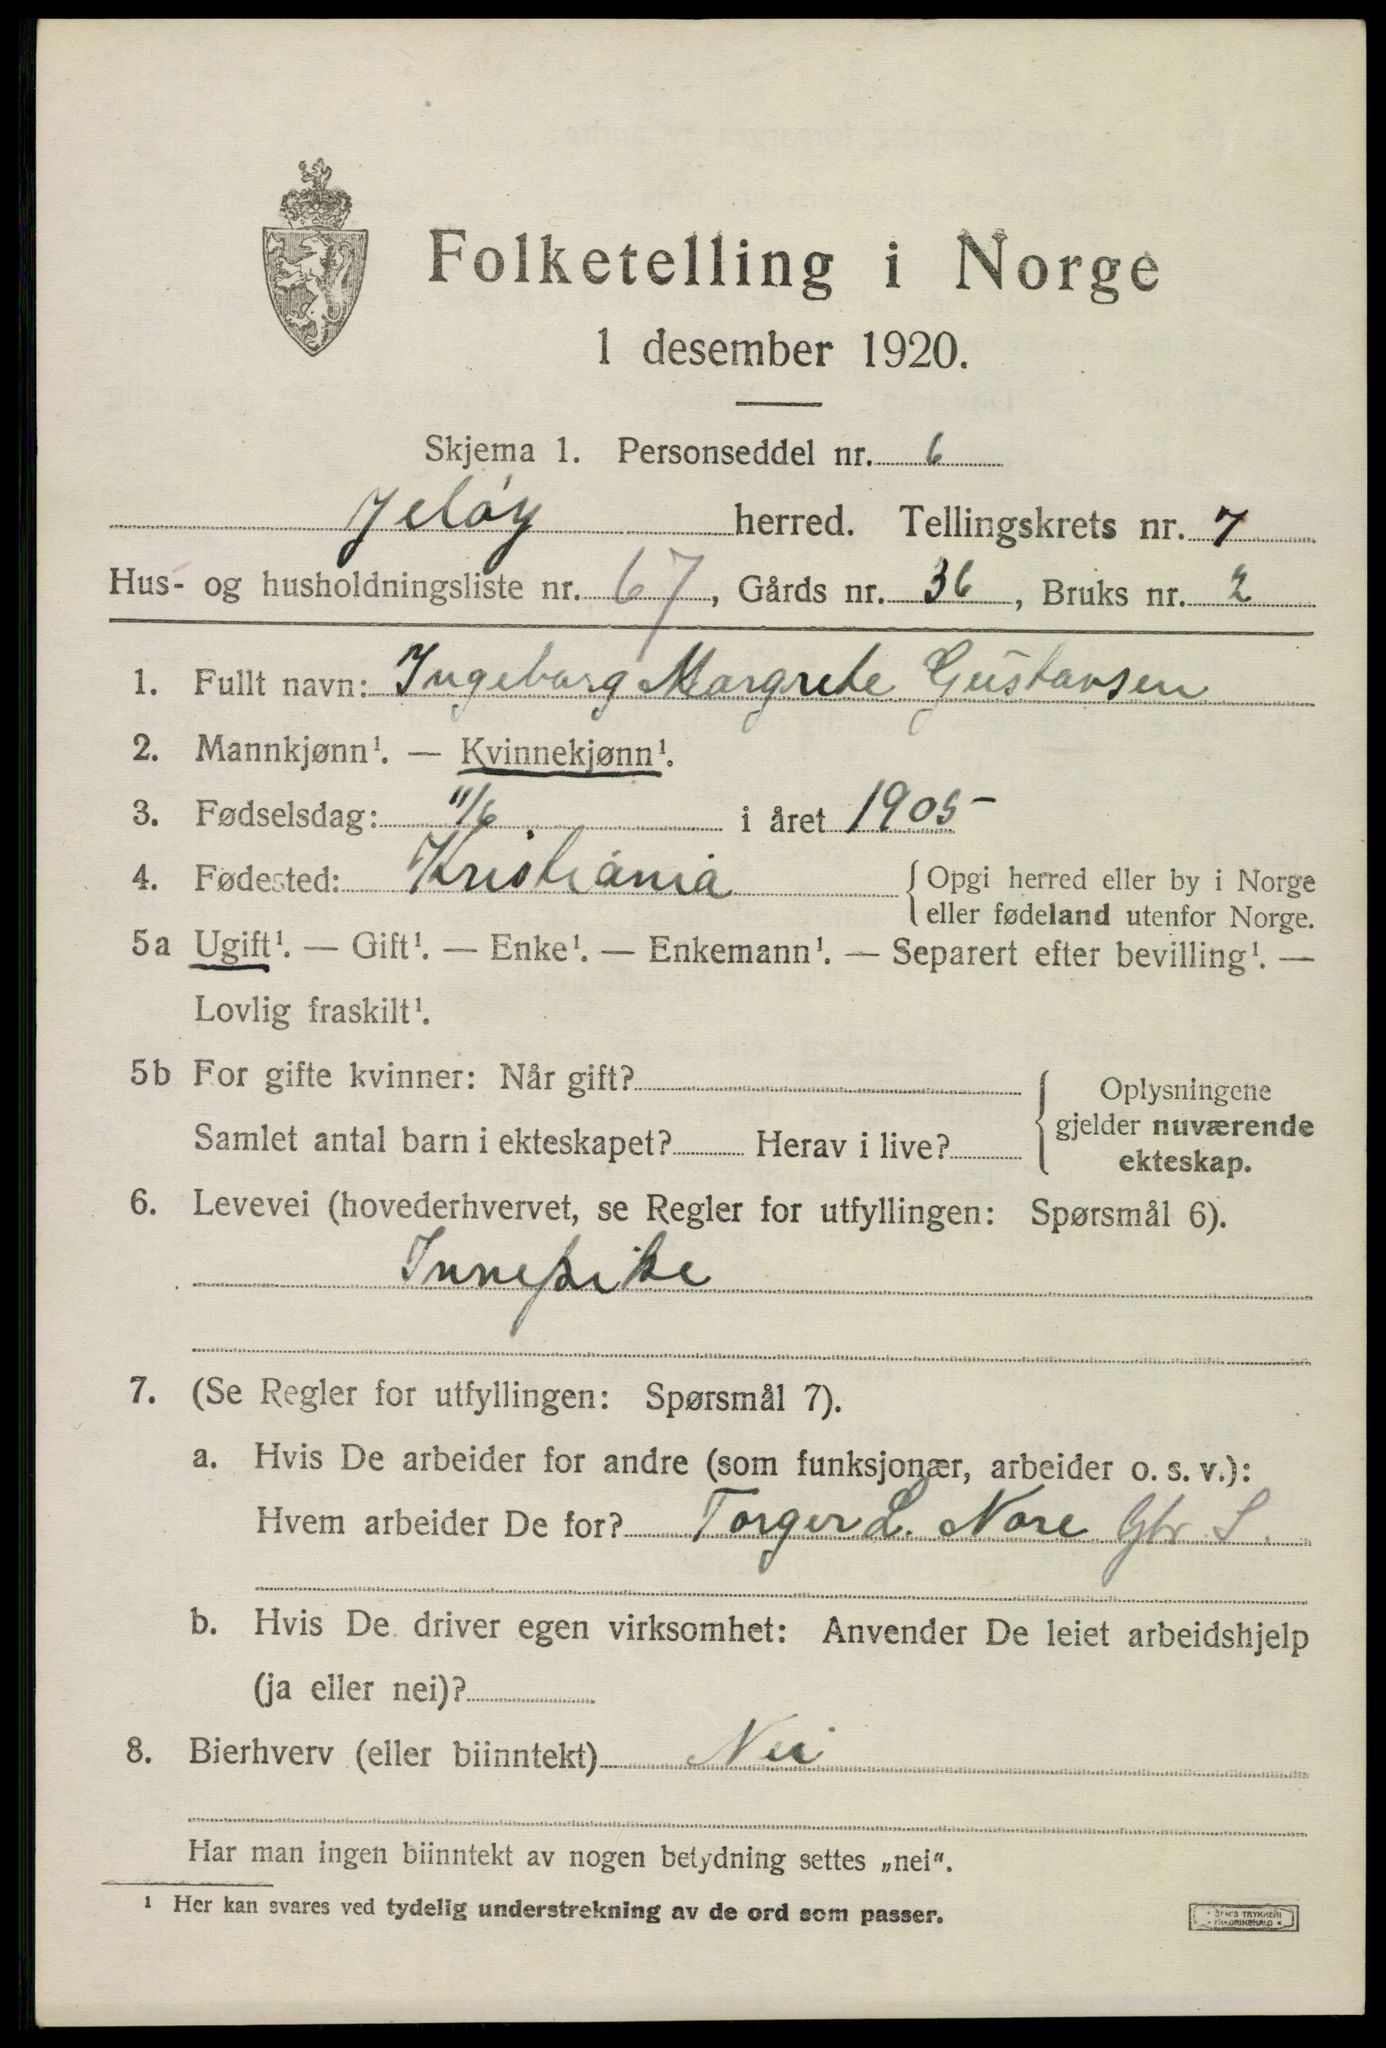 Folketelling i Norge
1 desember 1920.
Skjema 1. Personseddel nr. 6
Jeløy herred. Tellingskrets nr. 7
Hus- og husholdningsliste nr. 67, Gårds nr. 36, Bruks nr. 2
1. Fullt navn: Ingeborg Margrete Gustavsen
2. Mannkjønn¹. — Kvinnekjønn¹.
3. Fødselsdag: 11/6 i året 1905
4. Fødested: Kristiania { Opgi herred eller by i Norge
eller fødeland utenfor Norge.
5a Ugift¹. — Gift¹. — Enke¹. — Enkemann¹. — Separert efter bevilling¹. —
Lovlig fraskilt¹.
5b For gifte kvinner: Når gift?
Samlet antal barn i ekteskapet? Herav i live?
Oplysningene
gjelder nuværende
ekteskap.
6. Levevei (hovederhvervet, se Regler for utfyllingen: Spørsmål 6).
Innepike
7. (Se Regler for utfyllingen: Spørsmål 7).
a. Hvis De arbeider for andre (som funksjonær, arbeider o. s. v.):
Hvem arbeider De for? Torger L. Nore Gbr. S.
b. Hvis De driver egen virksomhet: Anvender De leiet arbeidshjelp
(ja eller nei)?
8. Bierhverv (eller biinntekt) Nei
Har man ingen biinntekt av nogen betydning settes „nei".
¹ Her kan svares ved tydelig understrekning av de ord som passer.
TRYKKERI